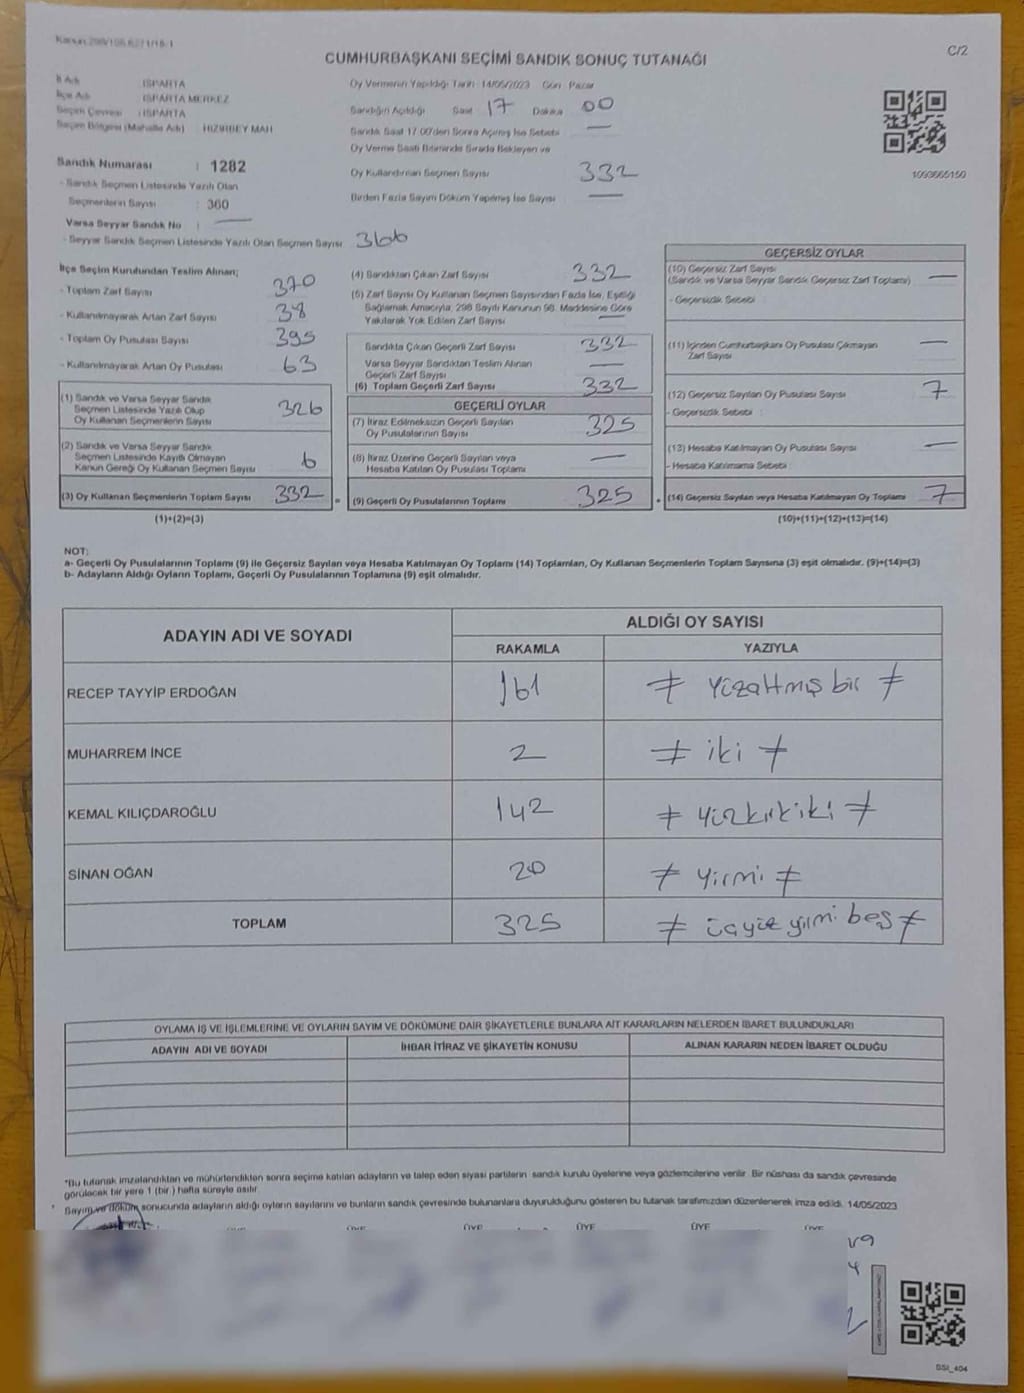 Kanun:298/105.6271/16-1
C/2
CUMHURBAŞKANI SEÇİMİ SANDIK SONUÇ TUTANAĞI
İl Adı : ISPARTA
İlçe Adı : ISPARTA MERKEZ
Seçim Çevresi : ISPARTA
Seçim Bölgesi (Mahalle Adı) : HIZIRBEY MAH
Sandık Numarası : 1282
- Sandık Seçmen Listesinde Yazılı Olan
Seçmenlerin Sayısı : 360
Varsa Seyyar Sandık No : —
- Seyyar Sandık Seçmen Listesinde Yazılı Olan Seçmen Sayısı 366
Oy Vermenin Yapıldığı Tarih : 14/05/2023 Gün : Pazar
Sandığın Açıldığı Saat 17 Dakika 00
Sandık Saat 17.00'den Sonra Açılmış İse Sebebi —
Oy Verme Saati Bitiminde Sırada Bekleyen ve
Oy Kullandırılan Seçmen Sayısı 332
Birden Fazla Sayım Döküm Yapılmış İse Sayısı —
1093665150
İlçe Seçim Kurulundan Teslim Alınan;
- Toplam Zarf Sayısı 370
- Kullanılmayarak Artan Zarf Sayısı 38
- Toplam Oy Pusulası Sayısı 395
- Kullanılmayarak Artan Oy Pusulası 63
(1) Sandık ve Varsa Seyyar Sandık
Seçmen Listesinde Yazılı Olup
Oy Kullanan Seçmenlerin Sayısı 326
(2) Sandık ve Varsa Seyyar Sandık
Seçmen Listesinde Kayıtlı Olmayan
Kanun Gereği Oy Kullanan Seçmen Sayısı 6
(3) Oy Kullanan Seçmenlerin Toplam Sayısı 332 =
(1)+(2)=(3)
(4) Sandıktan Çıkan Zarf Sayısı 332
(5) Zarf Sayısı Oy Kullanan Seçmen Sayısından Fazla İse, Eşitliği
Sağlamak Amacıyla, 298 Sayılı Kanunun 98. Maddesine Göre
Yakılarak Yok Edilen Zarf Sayısı —
Sandıkta Çıkan Geçerli Zarf Sayısı 332
Varsa Seyyar Sandıktan Teslim Alınan
Geçerli Zarf Sayısı —
(6) Toplam Geçerli Zarf Sayısı 332
GEÇERLİ OYLAR
(7) İtiraz Edilmeksizin Geçerli Sayılan
Oy Pusulalarının Sayısı 325
(8) İtiraz Üzerine Geçerli Sayılan veya
Hesaba Katılan Oy Pusulası Toplamı —
(9) Geçerli Oy Pusulalarının Toplamı 325 +
GEÇERSİZ OYLAR
(10) Geçersiz Zarf Sayısı
(Sandık ve Varsa Seyyar Sandık Geçersiz Zarf Toplamı) —
- Geçersizlik Sebebi :
(11) İçinden Cumhurbaşkanı Oy Pusulası Çıkmayan
Zarf Sayısı —
(12) Geçersiz Sayılan Oy Pusulası Sayısı 7
- Geçersizlik Sebebi :
(13) Hesaba Katılmayan Oy Pusulası Sayısı —
- Hesaba Katılmama Sebebi :
(14) Geçersiz Sayılan veya Hesaba Katılmayan Oy Toplamı 7
(10)+(11)+(12)+(13)=(14)
NOT:
a- Geçerli Oy Pusulalarının Toplamı (9) ile Geçersiz Sayılan veya Hesaba Katılmayan Oy Toplamı (14) Toplamları, Oy Kullanan Seçmenlerin Toplam Sayısına (3) eşit olmalıdır. (9)+(14)=(3)
b- Adayların Aldığı Oyların Toplamı, Geçerli Oy Pusulalarının Toplamına (9) eşit olmalıdır.
ADAYIN ADI VE SOYADI
ALDIĞI OY SAYISI
RAKAMLA YAZIYLA
RECEP TAYYİP ERDOĞAN 161 ≠ Yüzaltmış bir ≠
MUHARREM İNCE 2 ≠ iki ≠
KEMAL KILIÇDAROĞLU 142 ≠ Yüzkırkiki ≠
SİNAN OĞAN 20 ≠ Yirmi ≠
TOPLAM 325 ≠ üçyüz yirmi beş ≠
OYLAMA İŞ VE İŞLEMLERİNE VE OYLARIN SAYIM VE DÖKÜMÜNE DAİR ŞİKAYETLERLE BUNLARA AİT KARARLARIN NELERDEN İBARET BULUNDUKLARI
ADAYIN ADI VE SOYADI İHBAR İTİRAZ VE ŞİKAYETİN KONUSU ALINAN KARARIN NEDEN İBARET OLDUĞU
*Bu tutanak imzalandıktan ve mühürlendikten sonra seçime katılan adayların ve talep eden siyasi partilerin sandık kurulu üyelerine veya gözlemcilerine verilir. Bir nüshası da sandık çevresinde
görülecek bir yere 1 (bir ) hafta süreyle asılır.
Sayım ve döküm sonucunda adayların aldığı oyların sayılarını ve bunların sandık çevresinde bulunanlara duyurulduğunu gösteren bu tutanak tarafımızdan düzenlenerek imza edildi. 14/05/2023
ÜYE ÜYE ÜYE ÜYE ÜYE ÜYE
SSI_404